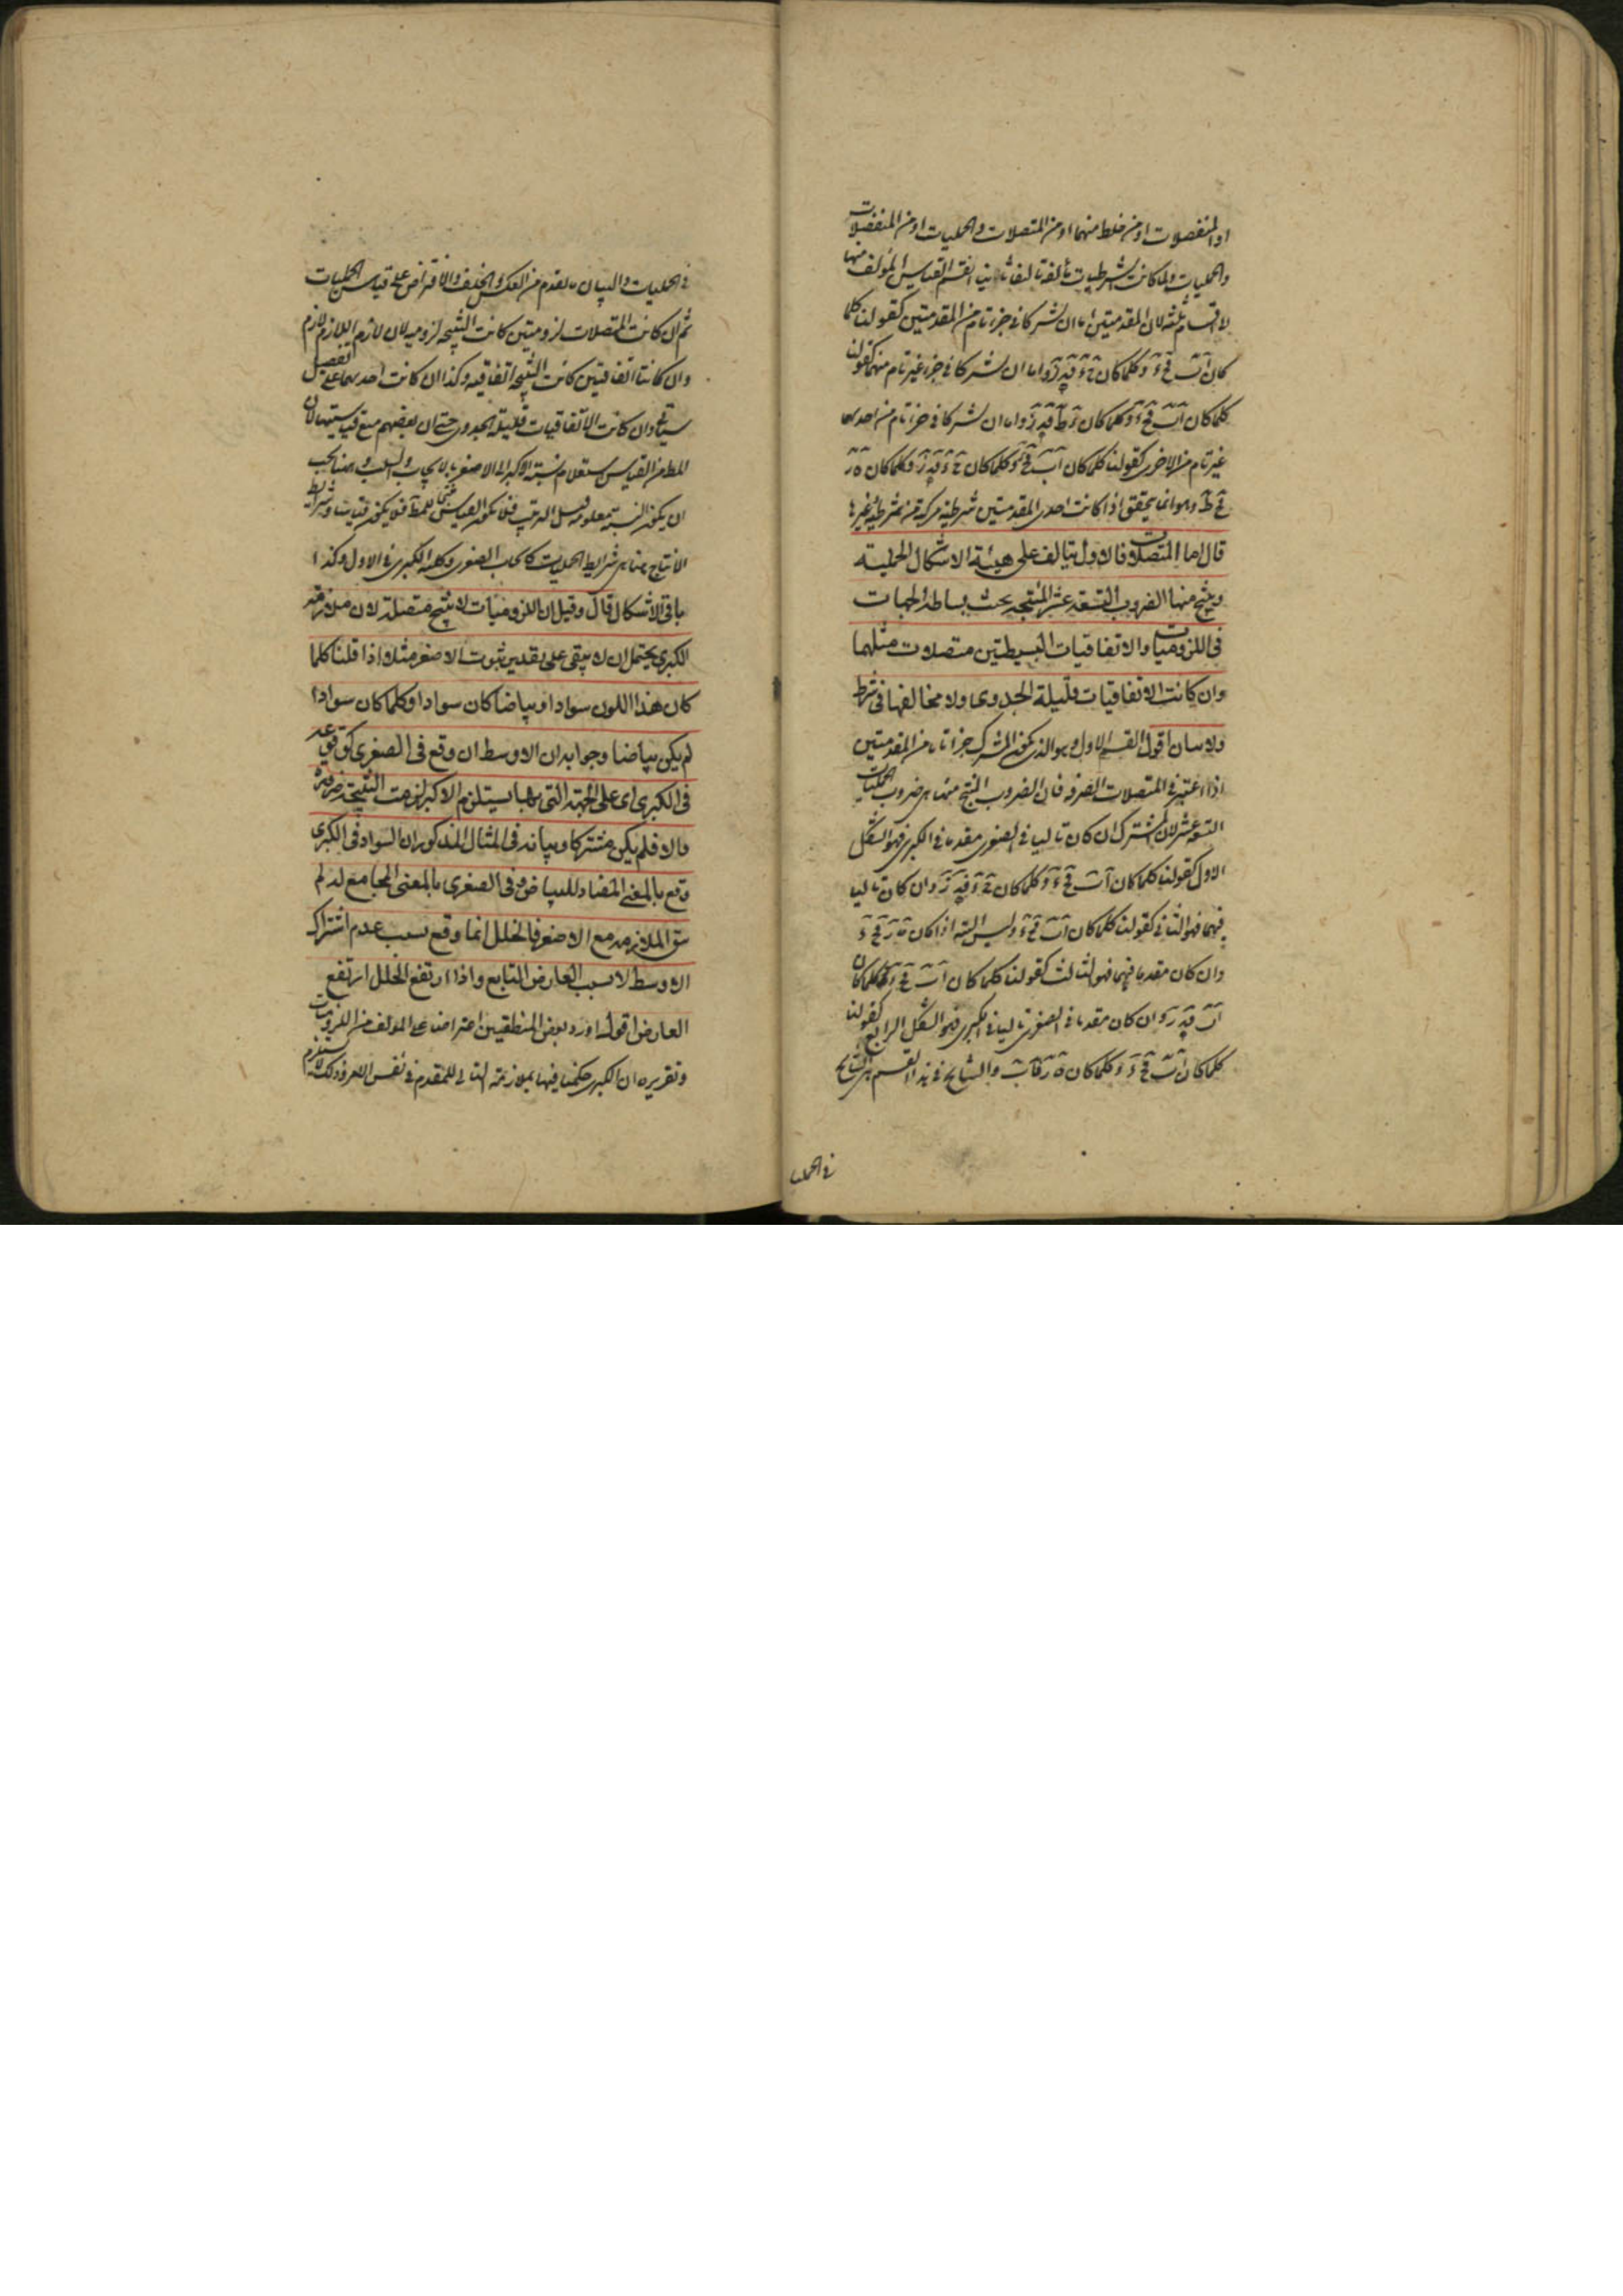 او المنفصلات او من خلط منهما او من المتصلات والحمليات او من المنفصلات
والحمليات ولما كانت الشرطيات تألفت تاليفا ثانيا انقسم القياس المؤلف منها
لاقسام ثلثة لان المقدمتين اما ان تشتركا فى جزء تام من المقدمتين كقولنا كلما
كان اب فج د وكلما كان ج د فه ز واما ان تشتركا فى جزء غير تام منهما كقولنا
كلما كان اب فج د وكلما كان د ط فه ز واما ان تشتركا فى جزء تام من احدهما
غير تام من الاخرى كقولنا كلما كان اب فج د وكلما كان ج د فه ز وكلما كان ه ز
فح ط وهو انما يتحقق اذا كانت احدى المقدمتين شرطية مركبة من شرطية وغيرها
قال اما المتصلات فالاول يتالف على هيئة الاشكال الحملية
وينتج منها الضروب التسعة عشر المنتجة بحث بساطة الجهات
فى اللزوميات والاتفاقيات البسيطتين متصلات مثلهما
وان كانت الاتفاقيات قليلة الجدوى ولا مخالفها فى شرط
ولا بيان اقول القسم الاول وهو الذى يكون المشترك جزءا تاما من المقدمتين
اذا اعتبر فى المتصلات الصرفة فان الضروب المنتج منها هى ضروب الحمليات
التسعة عشر لان المشترك ان كان تاليا فى الصغرى مقدما فى الكبرى فهو الشكل
الاول كقولنا كلما كان اب فج د وكلما كان ج د فه ز وان كان تاليا
فيهما فهو الثانى كقولنا كلما كان اب فج د وليس البتة اذا كان ه ز فج د
وان كان مقدما فيهما فهو الثالث كقولنا كلما كان اب فج د وكلما كان
اب فه ز وان كان مقدما فى الصغرى تاليا فى الكبرى فهو الشكل الرابع كقولنا
كلما كان اب فج د وكلما كان ه ز فاب والنتايج فى هذا القسم هى النتايج
فى الحمليا
فى الحمليات والبيان ما تقدم من العكس والخلف والافتراض على قياس الحمليات
ثم ان كانت المتصلات لزوميتين كانت النتيجة لزومية لان لازم اللازم لازم
وان كانتا اتفاقيتين كانت النتيجة اتفاقية وكذا ان كانت احدهما على تفصيل
سياتى وان كانت الاتفاقيات قليلة الجدوى حتى ان بعضهم منع قياسيتها لان
المط من القياس استعلام نسبة الاكبر الى الاصغر بالايجاب والسلب
ان يكون النسبة معلومة قبل التركيب فلا يكون القياس منتجا للمط فلا يكون قياسا وشرايط
الانتاج ههنا هى شرايط الحمليات كايجاب الصغرى وكلية الكبرى فى الاول وكذا
باقى الاشكال قال وقيل ان اللزوميات لا ينتج متصلة لان ملازمة
الكبرى يحتمل ان لا يبقى على تقدير ثبوت الاصغر مثلا اذا قلنا كلما
كان هذا اللون سوادا وبياضا كان سوادا وكلما كان سوادا
لم يكن بياضا وجوابه ان الاوسط ان وقع فى الصغرى كوقوعه
فى الكبرى اى على الجهة التى بها يستلزم الاكبر لزمت النتيجة ضرورة
والا فلم يكن مشتركا وبيانه فى المثال المذكور ان السواد فى الكبرى
وقع بالمعنى المضاد للبياض وفى الصغرى بالمعنى المجامع له لم
تبق الملازمة مع الاصغر فالخلل انما وقع بسبب عدم اشتراك
الاوسط لا بسبب العارض التابع واذا ارتفع الخلل ارتفع
العارض اقول اورد بعض المنطقيين اعتراضا على المؤلف من اللزوميات
وتقريره ان الكبرى حكمنا فيها بملازمة التالى للمقدم فى نفس الامر وذلك لا يستلزم